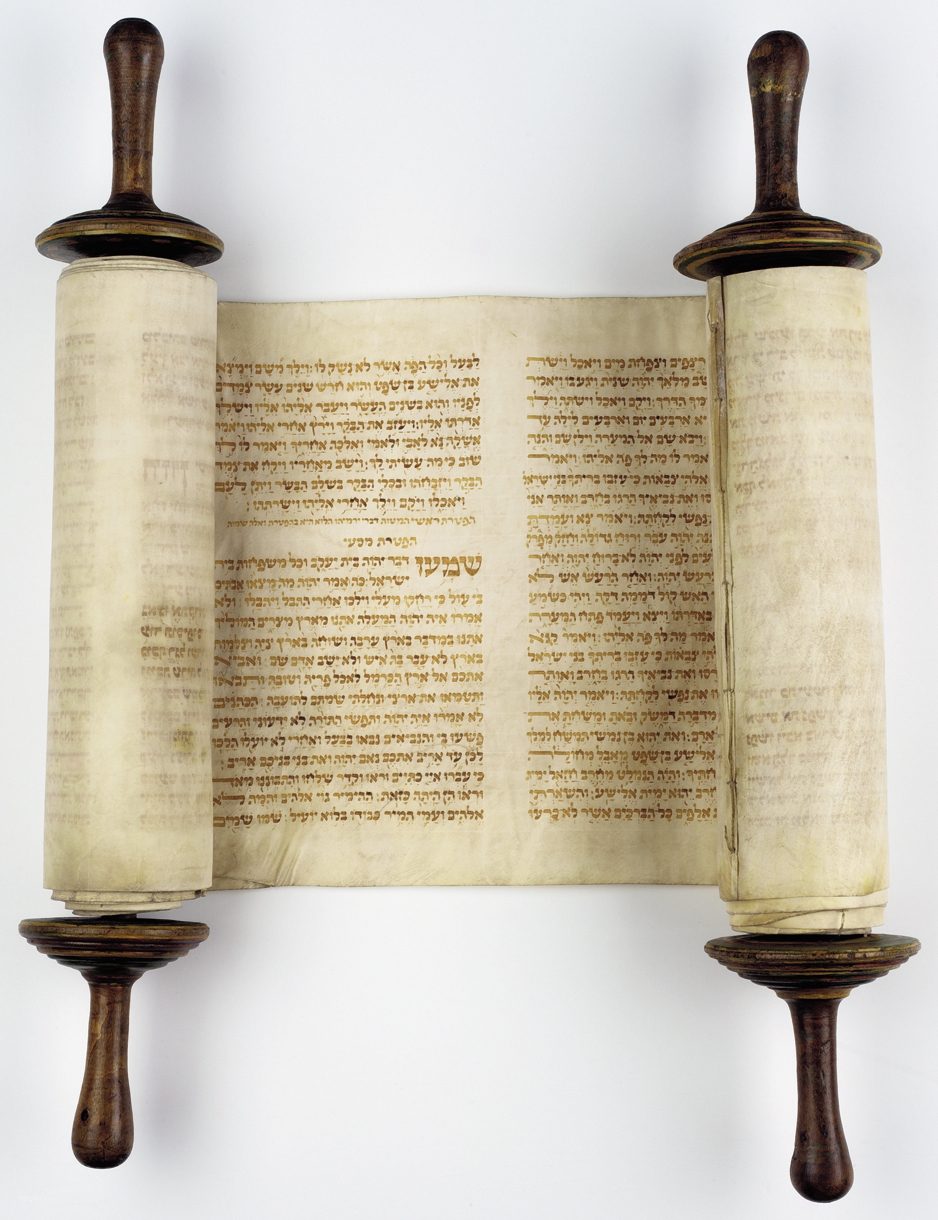 רצפים וצפחת מים ויאכל וישת
שב מלאך יהוה שנית ויגע בו ויאמר
הדרך: ויקם ויאכל וישתה
ארבעים יום וארבעים לילה עד
ויבא שם אל המערה וילן שם והנה
אמר לו מה לך פה אליהו: ויאמר
אלהי צבאות כי עזבו בריתך בני ישראל
סו ואת נביאיך הרגו בחרב ואותר אני
נפשי לקחתה: ויאמר צא ועמדת
והנה יהוה עבר ורוח גדולה
עים לפני יהוה לא ברוח יהוה ואחר
רעש יהוה: ואחר הרעש אש לא
האש קול דממה דקה: ויהי כשמע
באדרתו ויצא ויעמד פתח המערה
אמר מה לך פה אליהו: ויאמר קנא
הי צבאות כי עזבו בריתך בני ישראל
רסו ואת נביאיך הרגו בחרב ואותר
את נפשי לקחתה: ויאמר יהוה אליו
מדברה דמשק ובאת ומשחת את
ארם: ואת יהוא בן נמשי תמשח למלך
אלישע בן שפט מאבל מחולה
תחתיך: והיה הנמלט מחרב חזאל ימית
חרב יהוא ימית אלישע: והשארתי
אלפים כל הברכים אשר לא כרעו
לבעל וכל הפה אשר לא נשק לו: וילך משם וימצא
את אלישע בן שפט והוא חרש שנים עשר צמדים
לפניו והוא בשנים העשר ויעבר אליהו אליו וישלך
אדרתו אליו: ויעזב את הבקר וירץ אחרי אליהו ויאמר
אשקה נא לאבי ולאמי ואלכה אחריך ויאמר לו לך
שוב כי מה עשיתי לך: וישב מאחריו ויקח את צמד
הבקר ויזבחהו ובכלי הבקר בשלם הבשר ויתן לעם
ויאכלו ויקם וילך אחרי אליהו וישרתהו:
הפטרת ראשי המטות דברי ירמיהו הלא היא בהפטרת ואלה שמות
הפטרת מסעי
שמעו דבר יהוה בית יעקב וכל משפחות בית
ישראל: כה אמר יהוה מה מצאו אבותיכם
בי עול כי רחקו מעלי וילכו אחרי ההבל ויהבלו: ולא
אמרו איה יהוה המעלה אתנו מארץ מצרים המוליך
אתנו במדבר בארץ ערבה ושוחה בארץ ציה וצלמות
בארץ לא עבר בה איש ולא ישב אדם שם: ואביא
אתכם אל ארץ הכרמל לאכל פריה וטובה ותבאו
ותטמאו את ארצי ונחלתי שמתם לתועבה: הכהנים
לא אמרו איה יהוה ותפשי התורה לא ידעוני והרעים
פשעו בי והנביאים נבאו בבעל ואחרי לא יועלו הלכו:
לכן עד אריב אתכם נאם יהוה ואת בני בניכם אריב:
כי עברו איי כתיים וראו וקדר שלחו והתבוננו מאד
וראו הן היתה כזאת: ההימיר גוי אלהים והמה לא
אלהים ועמי המיר כבודו בלוא יועיל: שמו שמים